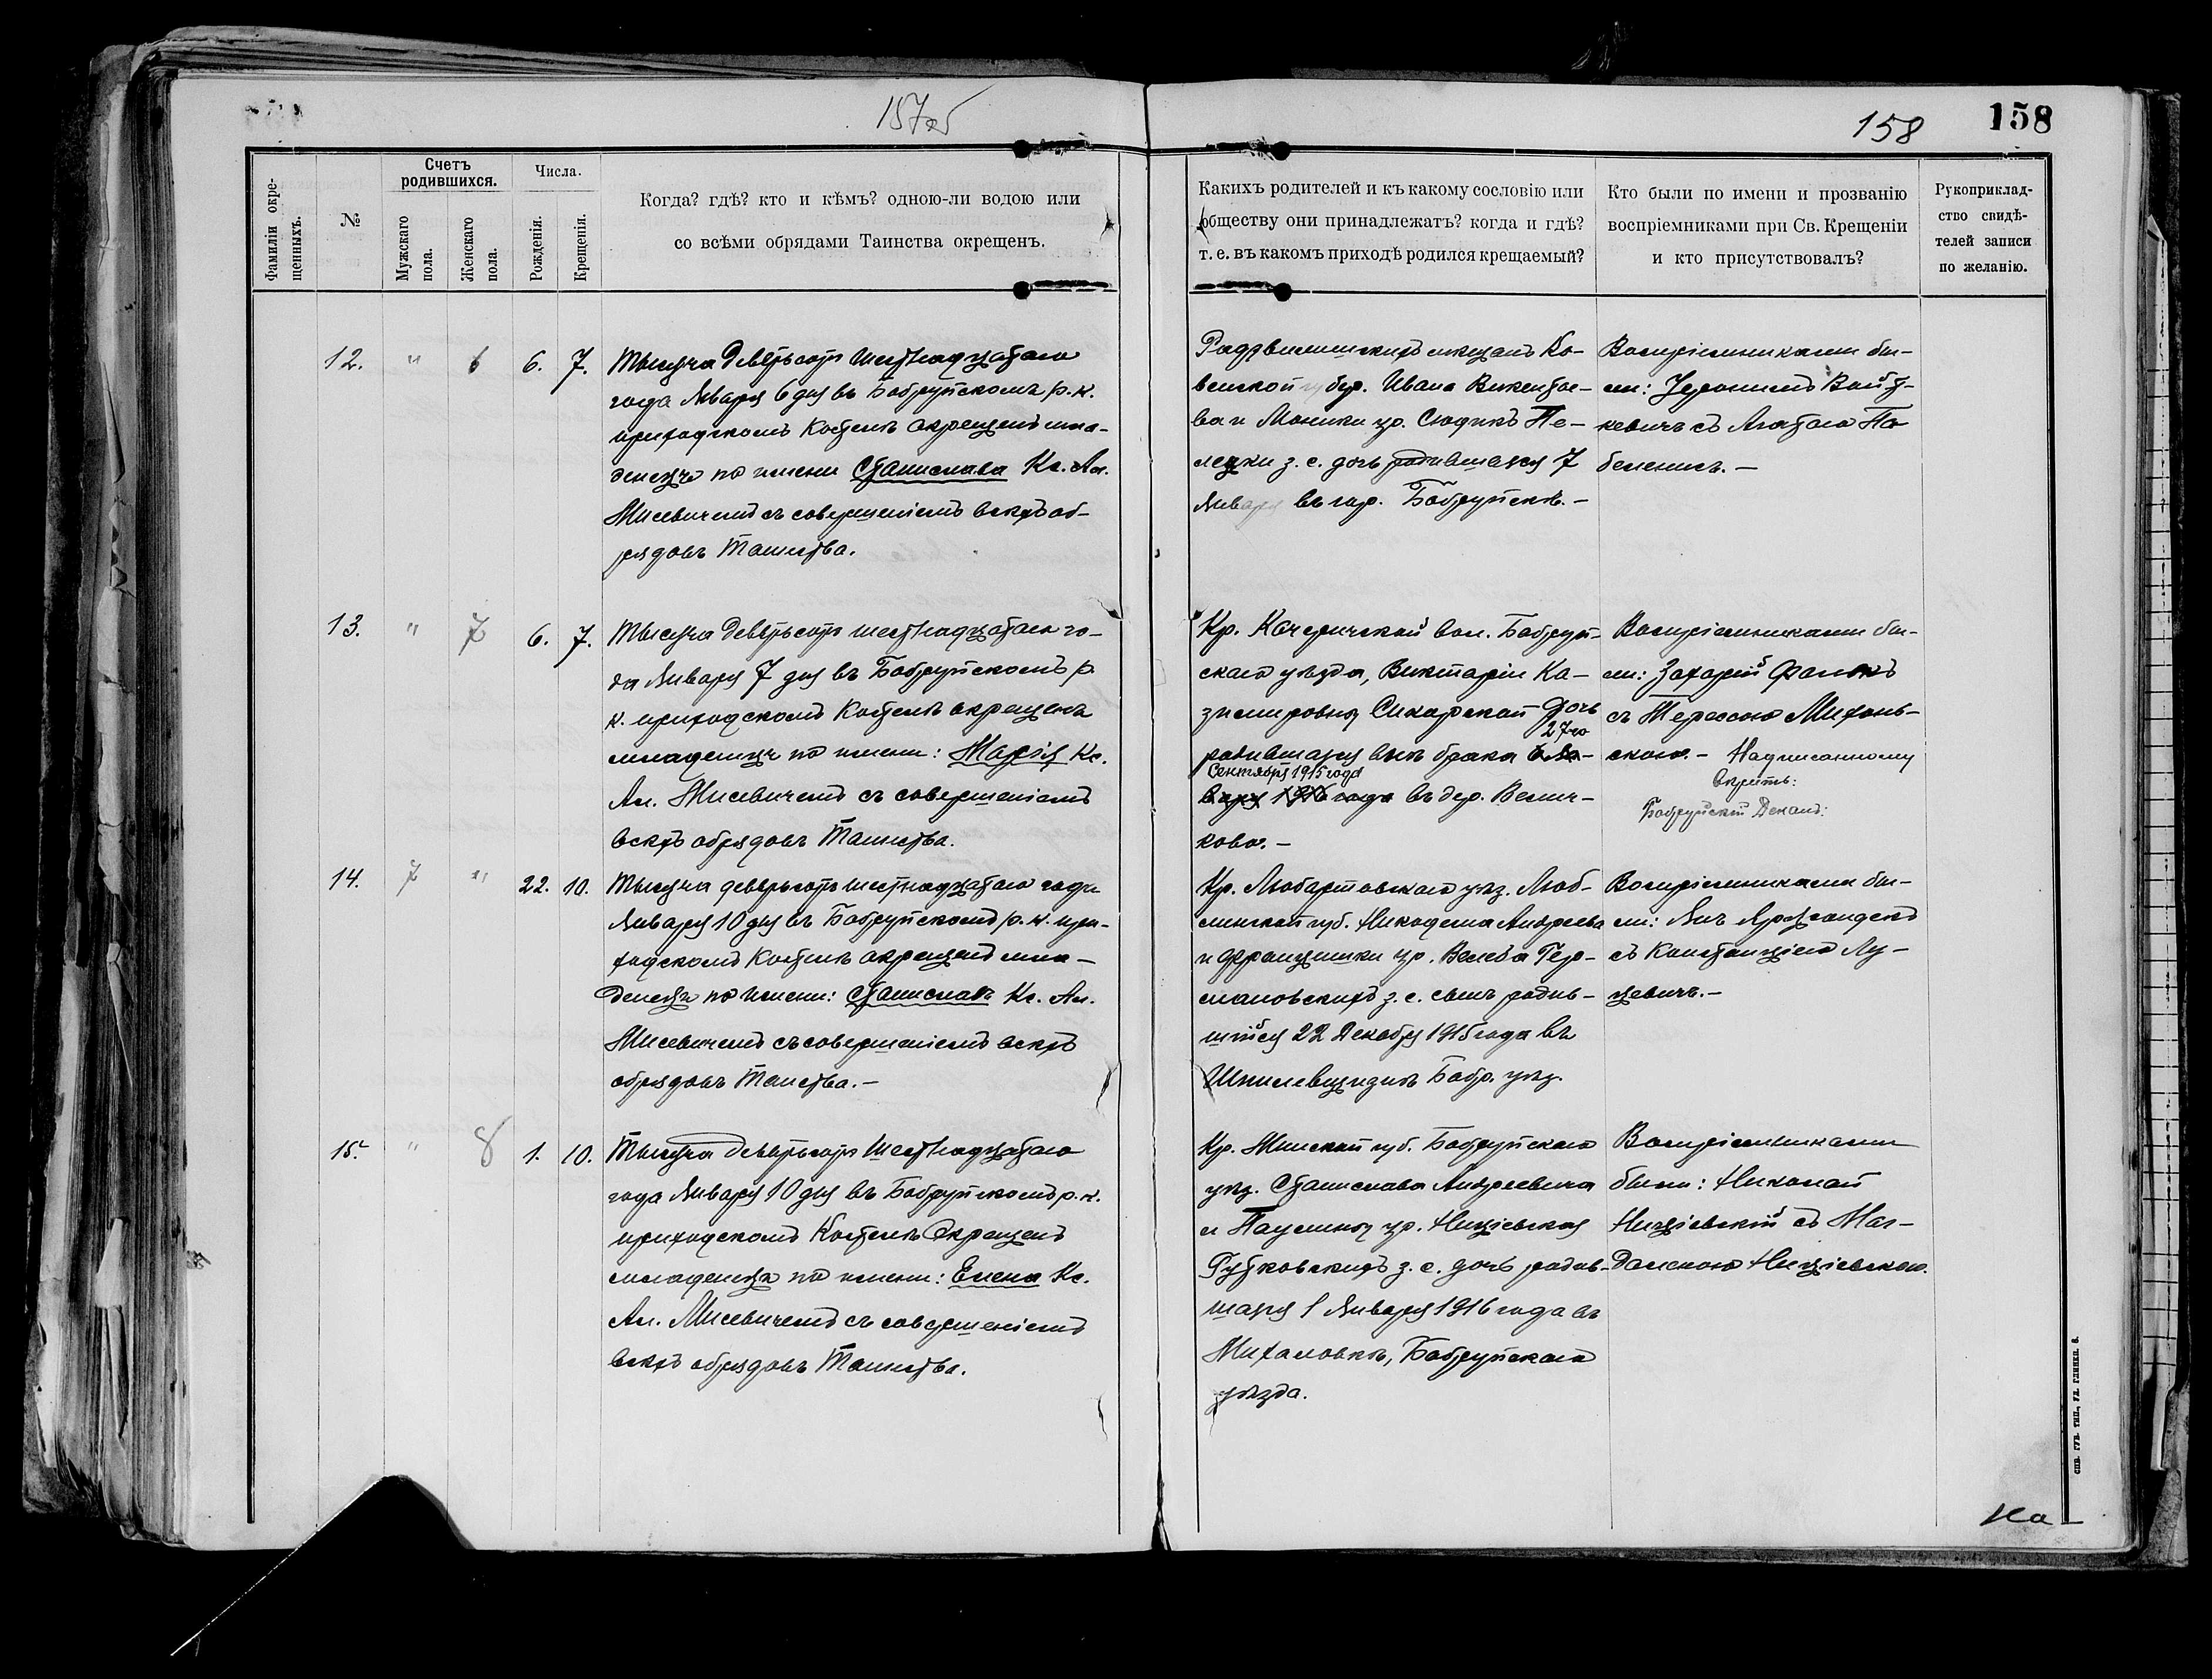 157об
158
158
Фамиліи окре-
щенныхъ.
№
Счетъ
родившихся.
Мужскаго
пола.
Женскаго
пола.
Числа.
Рожденія.
Крещенія.
Когда? гдѣ? кто и кѣмъ? одною-ли водою или
со всѣми обрядами Таинства окрещенъ.
Какихъ родителей и къ какому сословію или
обществу они принадлежатъ? когда и гдѣ?
т. е. въ какомъ приходѣ родился крещаемый?
Кто были по имени и прозванію
воспріемниками при Св. Крещеніи
и кто присутствовалъ?
Рукоприклад-
ство свидѣ-
телей записи
по желанію.
12. " 6 6. 7.
Тысяча девятьсотъ шестнадцатаго
года Января 6 дня въ Бобруйскомъ р.-к.
приходскомъ Костелѣ окрещенъ мла-
денецъ по имени Станислава Кс. Ал.
Мисевичемъ съ совершеніемъ всѣхъ об-
рядовъ Таинства.
Радзвилишскихъ мѣщанъ Ко-
венской губер. Ивана Викентье-
ва и Моники ур. Сюдикъ Пе-
лецки з. с. дочь родившаяся 7
Января въ гор. Бобруйскѣ.-
Воспріемниками бы-
ли: Іеронимъ Войт-
кевичъ съ Агатою
13. " 7 6. 7.
Тысяча девятьсотъ шестнадцатаго го-
да Января 7 дня въ Бобруйскомъ р.
к. приходскомъ Костелѣ окрещенъ
младенецъ по имени: Марія Кс.
Ал. Мисевичемъ съ совершеніемъ
всѣхъ обрядовъ Таинства.
Кр. Качеричской вол. Бобруй-
скаго уѣзда, Викторіи Ка-
зимировны Сикорской дочь
27го
родившаяся внѣ брака в Ян-
Сентября 1915 года
варя 1916 года въ дер. Велич-
ково.-
Воспріемниками бы-
ли: Захарій
съ Терезою Михонь-
скою.- Надписанному
вѣрить:
Бобруйскій Деканъ:
14. 7 " 22. 10.
Тысяча девятьсотъ шестнадцатаго года
Января 10 дня въ Бобруйскомъ р.-к. при-
ходскомъ Костелѣ окрещенъ мла-
денецъ по имени: Станиславъ Кс. Ал.
Мисевичемъ съ совершеніемъ всѣхъ
обрядовъ Таинства.-
Кр. Любартовскаго уѣз. Люб-
линской губ. Никодема Андреева
и Францишки ур. Велеба Гер-
мановскихъ з. с. сынъ родив-
шійся 22 Декабря 1915 года въ
Шпилевщизнѣ Бобр. уѣз.
Воспріемниками бы-
ли: Янъ
съ Констанціею Лу-
цевичъ.-
15. " 8 1. 10.
Тысяча девятьсотъ шестнадцатаго
года Января 10 дня въ Бобруйскомъ р.-к.
приходскомъ Костелѣ Окрещенъ
младенецъ по имени: Елена Кс.
Ал. Мисевичемъ съ совершеніемъ
всѣхъ обрядовъ Таинства.
Кр. Минской губ. Бобруйскаго
уѣз. Станислава Андреевича
и Паулины ур. Ниціевская
Рутковскихъ з. с. дочь родив-
шаяся 1 Января 1916 года въ
Михаловкѣ, Бобруйскаго
уѣзда.
Воспріемниками
были: Николай
Ницієвскій съ Маг-
даленою Ницієвскою.
На
СПБ. ГУБ. ТИП., УЛ. ГЛИНКИ. 8.